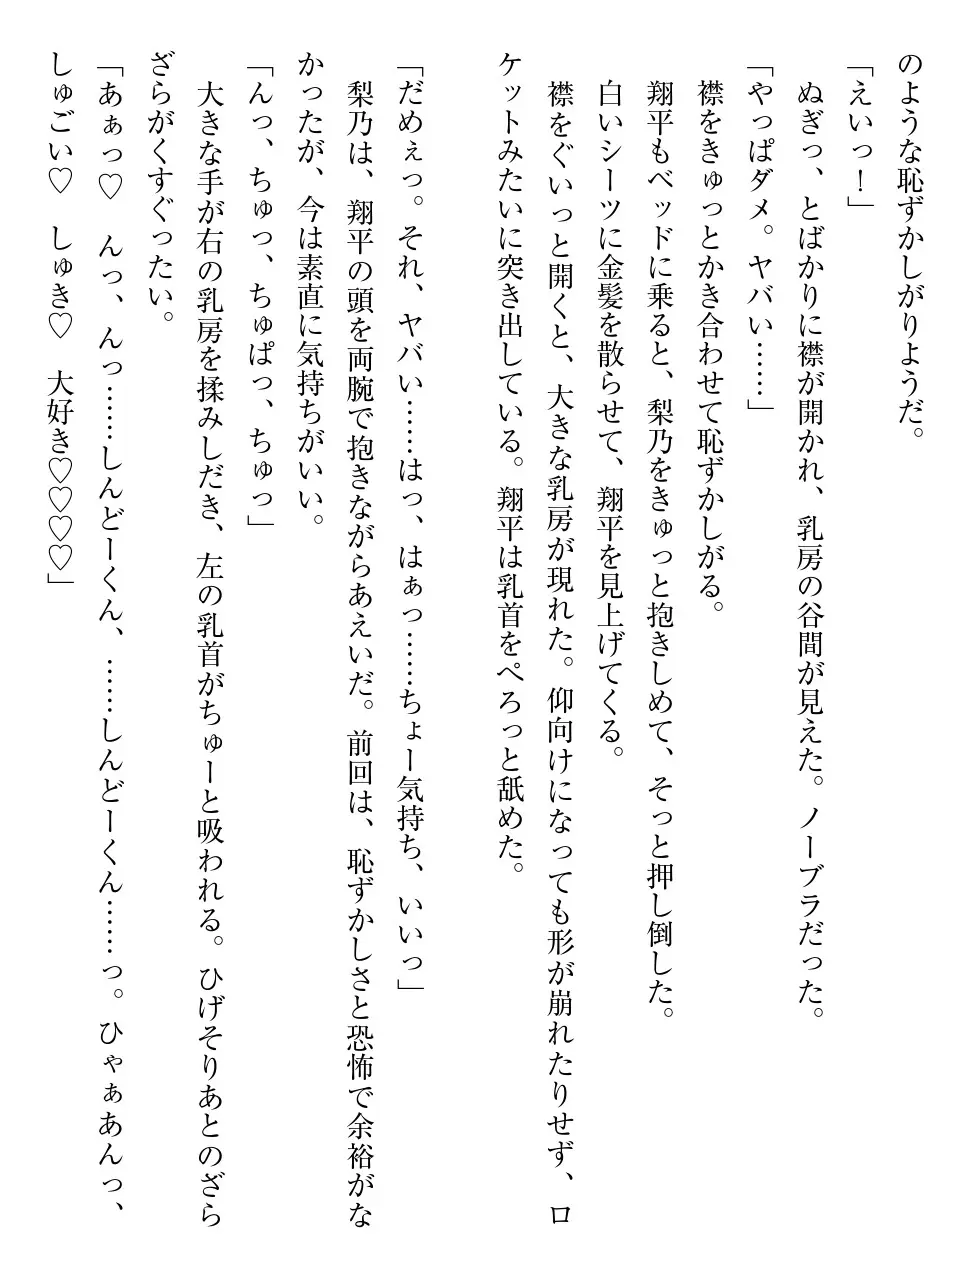 のような恥ずかしがりようだ。
「えいっ！」
ぬぎっ、とばかりに襟が開かれ、乳房の谷間が見えた。ノーブラだった。
「やっぱダメ。ヤバい……」
襟をきゅっとかき合わせて恥ずかしがる。
翔平もベッドに乗ると、梨乃をきゅっと抱きしめて、そっと押し倒した。
白いシーツに金髪を散らせて、翔平を見上げてくる。
襟をぐいっと開くと、大きな乳房が現れた。仰向けになっても形が崩れたりせず、ロ
ケットみたいに突き出している。翔平は乳首をぺろっと舐めた。
「だめぇっ。それ、ヤバい……はっ、はぁっ……ちょー気持ち、いいっ」
梨乃は、翔平の頭を両腕で抱きながらあえいだ。前回は、恥ずかしさと恐怖で余裕がな
かったが、今は素直に気持ちがいい。
「んっ、ちゅっ、ちゅぱっ、ちゅっ」
大きな手が右の乳房を揉みしだき、左の乳首がちゅーと吸われる。ひげそりあとのざら
ざらがくすぐったい。
「あぁっ♡　んっ、んっ……しんどーくん、……しんどーくん……っ。ひゃぁあんっ、
しゅごい♡　しゅき♡　大好き♡♡♡♡」